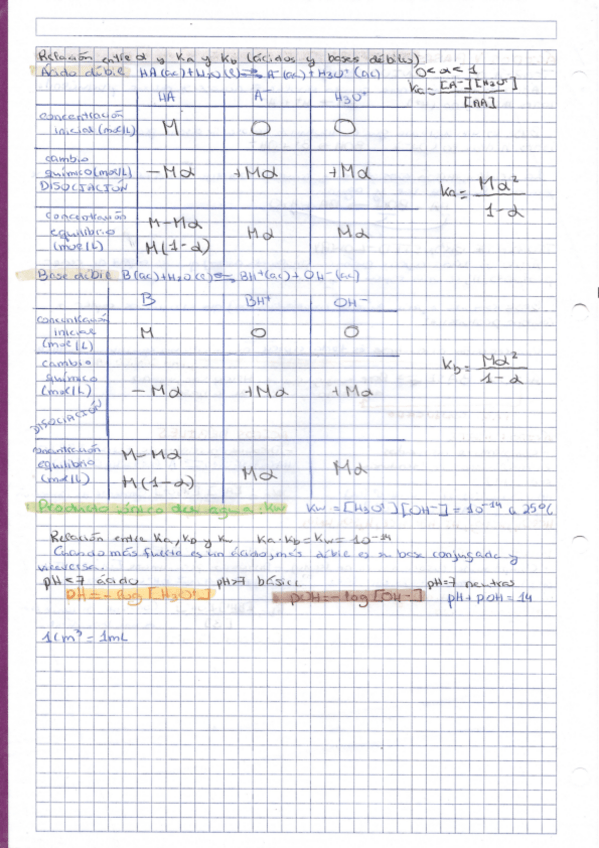 Relación entre α y Ka y Kb (ácidos y bases débiles)
0 < α < 1
Ácido débil HA(ac) + H₂O(l) ⇌ A⁻(ac) + H₃O⁺(ac)
Ka = [A⁻][H₃O⁺] / [AA]
HA A⁻ H₃O⁺
concentración inicial (mol/L) M O O
cambio
químico (mol/L) -Mα +Mα +Mα
DISOCIACIÓN
Ka = Mα² / 1-α
concentración M-Mα
equilibrio Mα Mα
(mol/L) M(1-α)
Base débil B(ac) + H₂O(l) ⇌ BH⁺(ac) + OH⁻(ac)
B BH⁺ OH⁻
concentración
inicial M O O
(mol/L)
cambio
químico
(mol/L) -Mα +Mα +Mα
DISOCIACIÓN
Kb = Mα² / 1-α
concentración M-Mα
equilibrio Mα Mα
(mol/L) M(1-α)
Producto iónico del agua: Kw Kw = [H₃O⁺][OH⁻] = 10⁻¹⁴ a 25ºC
Relación entre Ka, Kb y Kw Ka·Kb = Kw = 10⁻¹⁴
Cuando más fuerte es un ácido, más débil es su base conjugada y
viceversa.
pH<7 ácido pH>7 básico pH=7 neutras
pH = -log [H₃O⁺] pOH = -log [OH⁻] pH + pOH = 14
1cm³ = 1mL